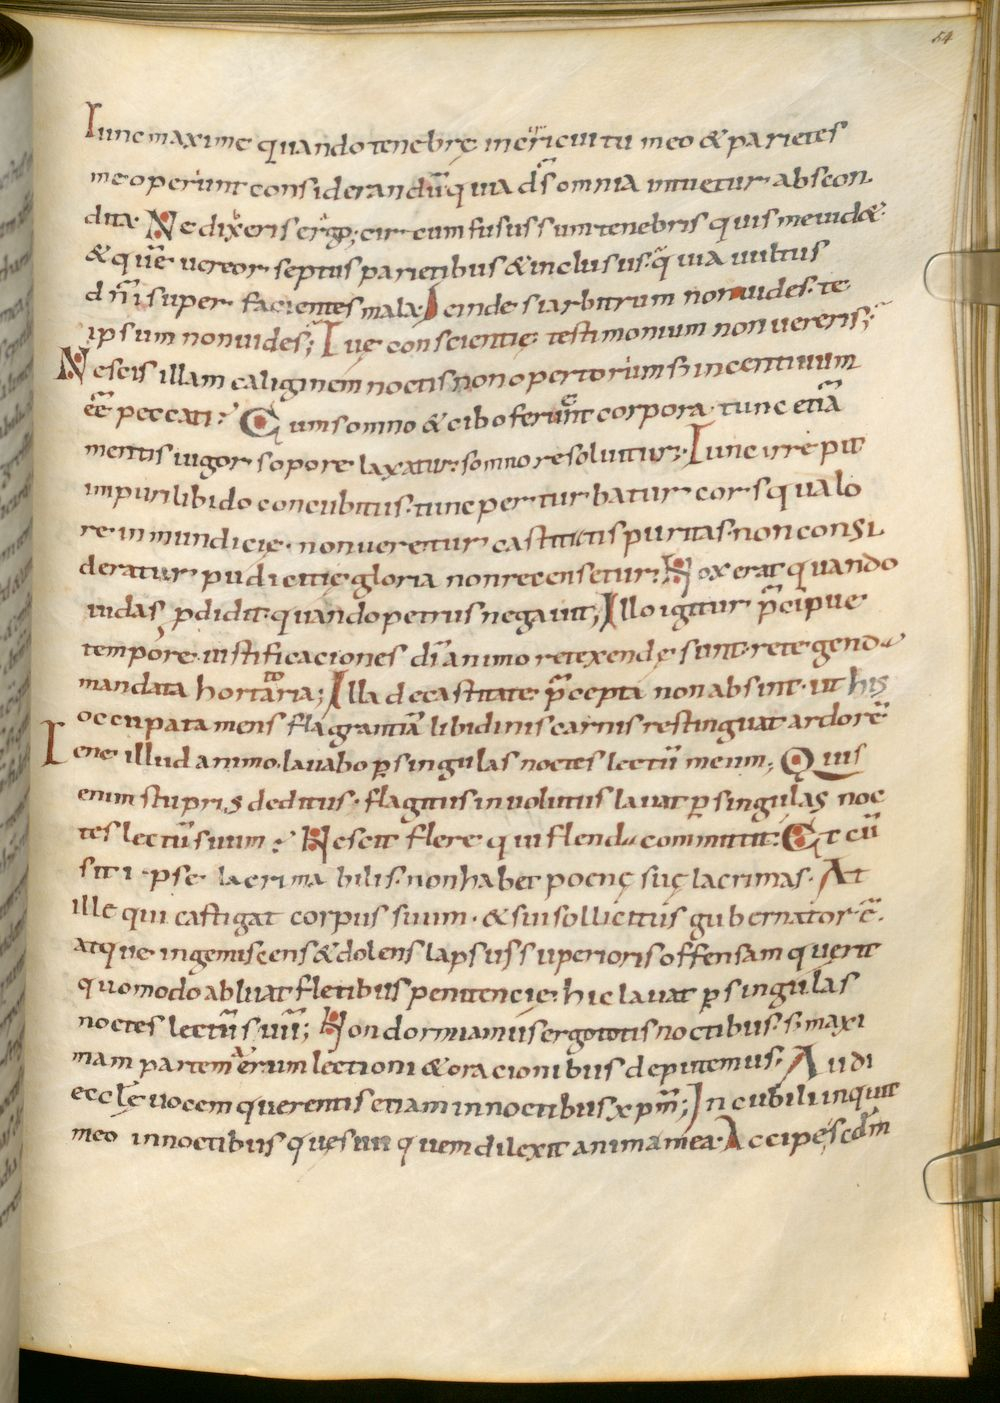 54
Tunc maxime quando tenebrę in circuitu meo & parietes
me operiunt considerandū quia d̄s omnia intuetur abscon
dita. Ne dixeris ergo; circumfusus sum tenebris quis me uid&.
& quē uereor septus parietibus & inclusus. quia uultus
d̄ni super facientes mala. Deinde si arbitrum non uides. te
ipsum non uides; Tuę conscientię testimonium non uereris;
Nescis illam caliginem noctis non opertorium s; incentiuum
eē peccati? Cum somno & cibo feruent corpora. tunc etiā
mentis uigor sopore laxatur. somno resoluitur. Tunc irrepit
impuri libido concubitus. tunc perturbatur cor squalo
re inmundicię. non ueretur castitatis puritas. non consi
deratur pudicitię gloria non recensetur. Nox erat quando
iudas p̄didit. quando petrus negauit; Illo igitur p̄cipue
tempore. iustificaciones d̄i animo retexendę sunt. retegend
mandata hortatoria; Illa de castitate p̄cepta non absint. ut his
occupata mens flagrantiā libidinis carnis restinguat ardorē
Tene illud animo. lauabo p̄ singulas noctes lectū meum; Quis
enim stupris deditus. flagitiis inuolutus lauat p̄ singulas noc
tes lectū suum? Nescit flere qui flend committit. Et cū
sit ipse lacrimabilis. non habet poenę suę lacrimas. At
ille qui castigat corpus suum. & sui sollicitus gubernator ē.
atque ingemiscens & dolens lapsus superioris offensam querit
quomodo abluat fletibus penitencię. hic lauat p̄ singulas
noctes lectū suū; Non dormiamus ergo totis noctibus. s; maxi
mam partem earum lectioni & oracionibus deputemus. Audi
eccl̄ę uocem querentis etiam in noctibus xp̄m; In cubili inquit
meo in noctibus quesiui quem dilexit anima mea. Accipe scd̄m